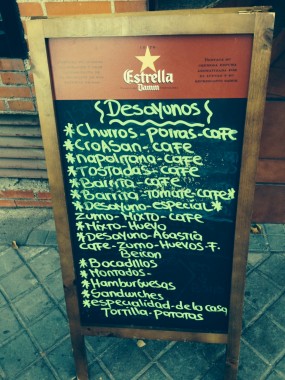 Estrella
Damm
{Desayunos}
*Churros-Porras-cafe
*CroAsan-cafe
*napolitana-cafe
*Tostadas-cafe
*Barrita-cafe
*Barrita-Tomate-cafe*
*Desayuno-especial*
Zumo-Mixto-cafe
*Mixto-Huevo
*Desayuno-Abastia
cafe-Zumo-Huevos-F.
Beicon
*Bocadillos
*Montados-
*Hamburguesas
*Sandwiches
*especialidad-de la casa
Tortilla-Patatas